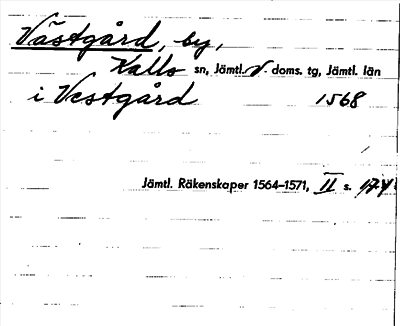 Västgård, by,
Kalls sn, Jämtl. v. doms. tg, Jämtl. län
i Vestgård 1568
Jämtl. Räkenskaper 1564–1571, II s. 174